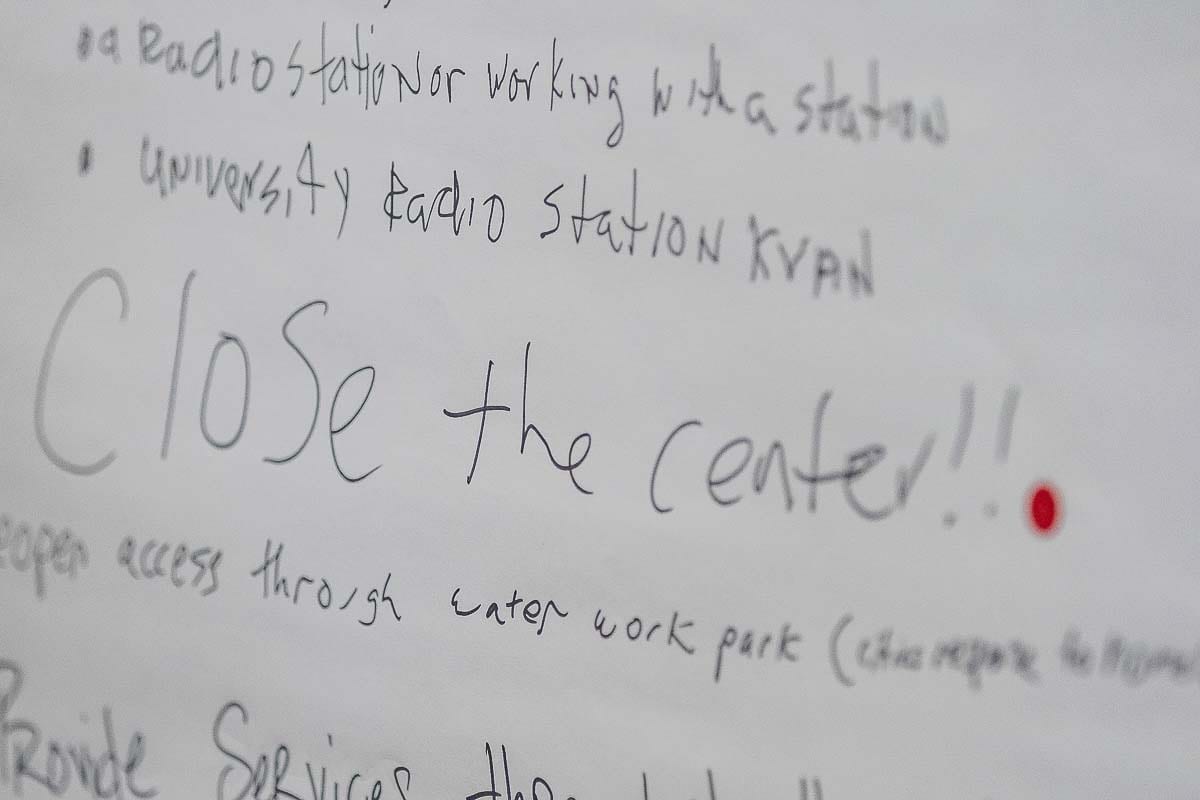 a Radio Station or working with a station
• University Radio Station KVAN
Close the center!!
eopen access through water work park (
Provide Services